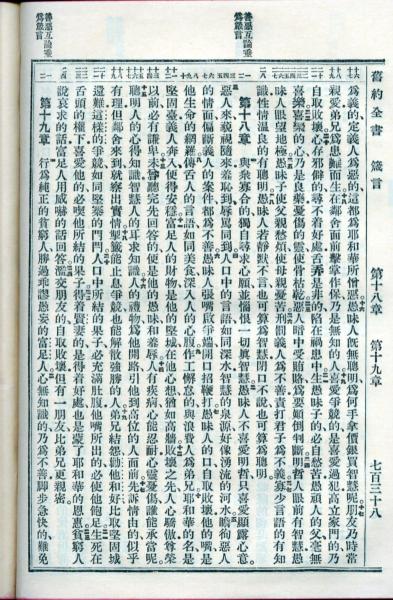 舊約全書 箴言 第十八章 第十九章 七百三十八
爲義的定義人爲惡的這都爲耶和華所憎惡愚昧人旣無聰明爲何手拿價銀買智慧呢朋友乃時常
親愛弟兄爲患難而生在鄰舍面前擊掌作保乃是無知的人喜愛爭競的是喜愛過犯高立家門的乃
自取敗壞心存邪僻的尋不着好處舌弄是非的陷在禍患中生愚昧子的必自愁苦愚頑人的父毫無
喜樂喜樂的心乃是良藥憂傷的靈使骨枯乾惡人暗中受賄賂爲要顛倒判斷明哲人眼前有智慧愚
昧人眼望地極愚昧子使父親愁煩使母親憂苦刑罰義人爲不善責打君子爲不義寡少言語的有知
識性情溫良的有聰明愚昧人若靜默不言也可算爲智慧閉口不說也可算爲聰明
善惡互論垂爲箴言
第十八章 與衆寡合的獨自尋求心願並惱恨一切眞智慧愚昧人不喜愛明哲只喜愛顯露心意
惡人來藐視隨來羞恥到辱罵同到人口中的言語如同深水智慧的泉源好像湧流的河水瞻徇惡人
的情面偏斷義人的案件都爲不善愚昧人張嘴啟爭端開口招鞭打愚昧人的口自取敗壞他的嘴是
他生命的網羅傳舌人的言語如同美食深入人的心腹作工懈惰的與浪費人爲弟兄耶和華的名是
堅固臺義人奔入便得安穩富足人的財物是他的堅城在他心想猶如高牆敗壞之先人心驕傲尊榮
以前必有謙卑未曾聽完先回答的便是他的愚昧和羞辱人有疾病心能忍耐心靈憂傷誰能承當呢
聰明人的心得知識智慧人的耳求知識人的禮物爲他開路引他到高位的人面前先訴情由的似乎
有理但鄰舍來到就察出實情掣籤能止息爭競也能解散強勝的人弟兄結怨勸他和好比取堅固城
還難這樣的爭競如同堅寨的門閂人口中所結的果子必充滿肚腹他嘴所出的必使他飽足生死在
舌頭的權下喜愛他的必喫他所結的果子得着賢妻的是得着好處也是蒙了耶和華的恩惠貧窮人
說哀求的話富足人用威嚇的話回答濫交朋友的自取敗壞但有一朋友比弟兄更親密
善惡互論垂爲箴言
第十九章 行爲純正的貧窮人勝過乖謬愚妄的富足人心無知識的乃爲不善脚步急快的難免